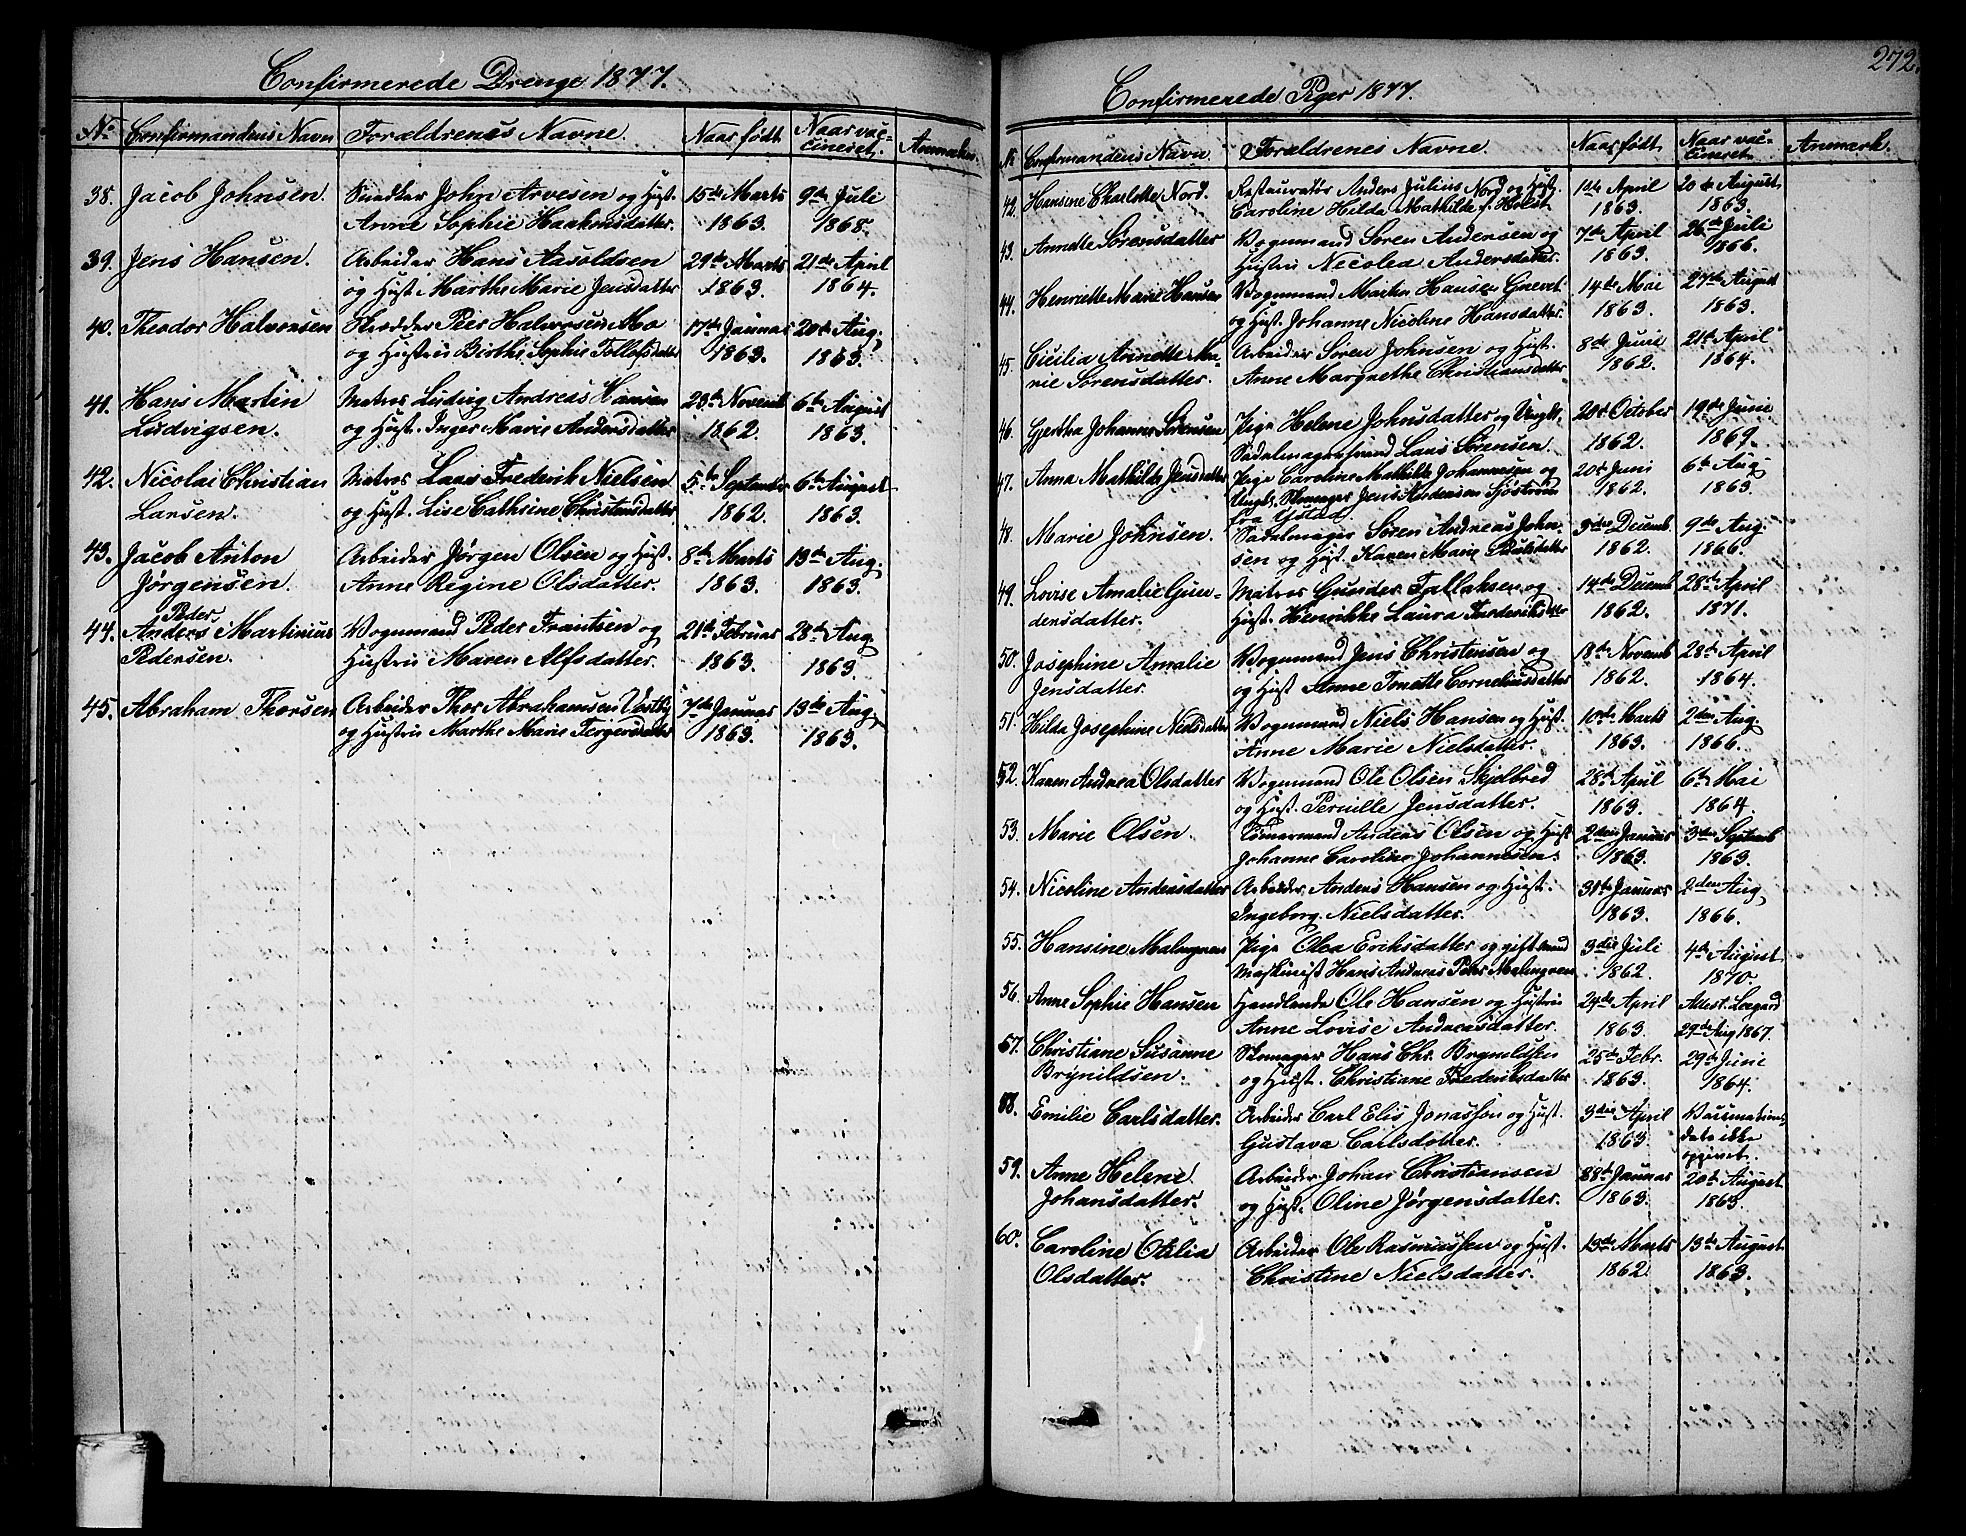 Confirmerede Drenge 1877.
No Confirmandens Navn Forældrenes Navne. Naar født Naar vac- Anmærkn.
cineret.
38. Jacob Johnsen. Snedker John Arvesen og Hust. 15de Marts 9de Juli
Anne Sophie Haakensdatter. 1863. 1868.
39. Jens Hansen. Arbeider Hans Aasoldsen 29de Marts 21de April
og Hust. Marthe Marie Jensdatter 1863. 1864.
40. Theodor Halvorsen Skrædder Peer Halvorsen Mo 17de Januar 20de Aug.
og Hustru Birthe Sophie Tollefsdatter 1863. 1863.
41. Hans Martin Matros Ludvig Andreas Hansen 23de Novemb 6te August
Ludvigsen. og Hust. Inger Marie Andersdatter 1862. 1863.
42. Nicolai Christian Matros Lars Frederik Nielsen 5te September 6te August
Larsen. og Hust. Lise Cathrine Christensdatter 1862. 1863.
43. Jacob Anton Arbeider Jørgen Olsen og Hust. 8de Marts 13de Aug.
Jørgensen. Anne Regine Olsdatter. 1863. 1863.
Peder
44. Anders Martinius Vognmand Peder Frantsen og 21de Februar 28de Aug.
Pedersen. Hustru Maren Alfsdatter. 1863. 1863.
45. Abraham Thorsen Arbeider Thor Abrahamsen 7de Januar 13de Aug.
og Hustru Marthe Marie Tergersdatter 1863. 1863.
272.
Confirmerede Piger 1877.
N Confirmandens Navn. Forældrenes Navne. Naar født Naar vac- Anmærk.
cineret
42. Hansine Charlotte Nord. Restauratør Anders Julius Nord og Hust. 1ste April 20de August
Caroline Hilda Mathilde f. Holst. 1863. 1863.
43. Annette Sørensdatter Vognmand Søren Andersen og 7de April 26de Juli
Hustru Nicolea Andersdatter. 1863. 1866.
44. Henriette Marie Hansen Vognmand Martin Hansen 14de Mai 27de August
og Hust. Johanne Nicoline Hansdatter. 1863. 1863.
45. Cicilia Annette Ma- Arbeider Søren Johnsen og Hust. 8de Juni 21de April
rie Sørensdatter. Anne Margrethe Christiansdatter 1862. 1864.
46. Gjertha Johanne Sørensen Pige Helene Johnsdatter og Ungk. 20de October 19de Juni
Sadelmagersvend Lars Sørensen. 1862. 1869.
47. Anna Mathilde Jensdatter Pige Caroline Mathilde Johannesen og 20de Juni 6te Aug.
Ungk. Skomager Jens Andersen Sjöström 1862. 1863.
fra Ystad
48. Marie Johnsen. Sadelmager Søren Andreas John- 3die Decemb. 9de Aug.
sen og Hust. Karen Marie Poulsdatter 1862. 1866.
49. Lovise Amalie Gun- Matros Gunder Tallaksen og 14de Decemb 28de April
dersdatter. Hust. Henrikke Laura Frederiksdtr 1862. 1871.
50. Josephine Amalie Vognmand Jens Christensen og 18de Novemb 28de April
Jensdatter. og Hust Anne Tonette Corneliusdatter 1862. 1864.
51. Hilda Josephine Nielsdatter Vognmand Niels Hansen og Hust. 10de Marts 2den Aug.
Anne Marie Nielsdatter. 1863. 1866.
52. Karen Andrea Olsdatter Vognmand Ole Olsen Skjelbred 28de April 6te Mai
og Hust. Pernille Jensdatter. 1863. 1864.
53. Marie Olsen. Tømmermand Anders Olsen og Hust 2den Januar 3die Septemb
Johanne Caroline Johannesen. 1863. 1863.
54. Nicoline Andersdatter Arbeider Anders Hansen og Hust. 31te Januar 2den Aug.
Ingeborg Nielsdatter. 1863. 1866.
55. Hansine Malmgreen Pige Olea Eriksdatter og gift Mand 3die Juli 4de August
Maskinist Hans Andreas Peter Malmgreen 1862. 1870.
56. Anne Sophie Hansen Handlende Ole Hansen og Hustru 24de April Attest.
Anne Lovise Andreasdatter. 1863. 29de Aug 1867.
57. Christiane Susanne Skomager Hans Chr. Brynildsen 25de Febr. 29de Juni
Brynildsen. og Hust. Christiane Frederiksdatter 1863. 1864.
58. Emilie Carlsdatter. Arbeider Carl Elis Jonasson og Hust. 3die April Vaccinations-
Gustava Carlsdotter. 1863 dato ikke
opgivet.
59. Anne Helene Arbeider Johan Christiansen 28de Januar 20de August
Johansdatter. og Hust. Oline Jørgensdatter. 1863. 1863.
60. Caroline Otilia Arbeider Ole Rasmussen og Hust. 13de Marts 13de August
Olsdatter. Christine Nielsdatter. 1862 1863.